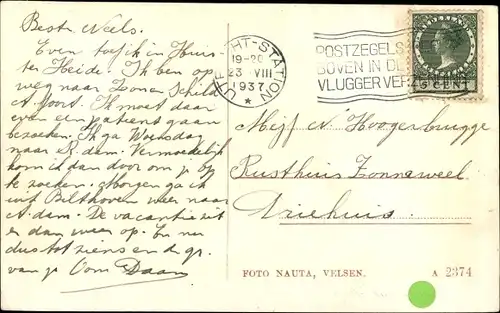 Beste Neels.
Even tref ik in Huis-
ter Heide. Ik ben op
weg naar Zonne Schild
A'foort. Ik moet daar
even een patient gaan
bezoeken. Ik ga Woensdag
naar R.dam. Vermoedelijk
kom ik dan door om je op
te zoeken. Morgen ga ik
uit Bilthoven weer naar
A.dam. De vacantie zit
er dan weer op. En nu
dus tot ziens en de gr.
van je Oom Daan
UTRECHT-STATION
19-20
23 VIII
1937
POSTZEGELS
BOVEN IN DE
VLUGGER VER
NEDERLAND
5 CENT
Mejf. v. Hoogerbrugge
Rusthuis Zonneweel
Driehuis
FOTO NAUTA, VELSEN.
A 2374